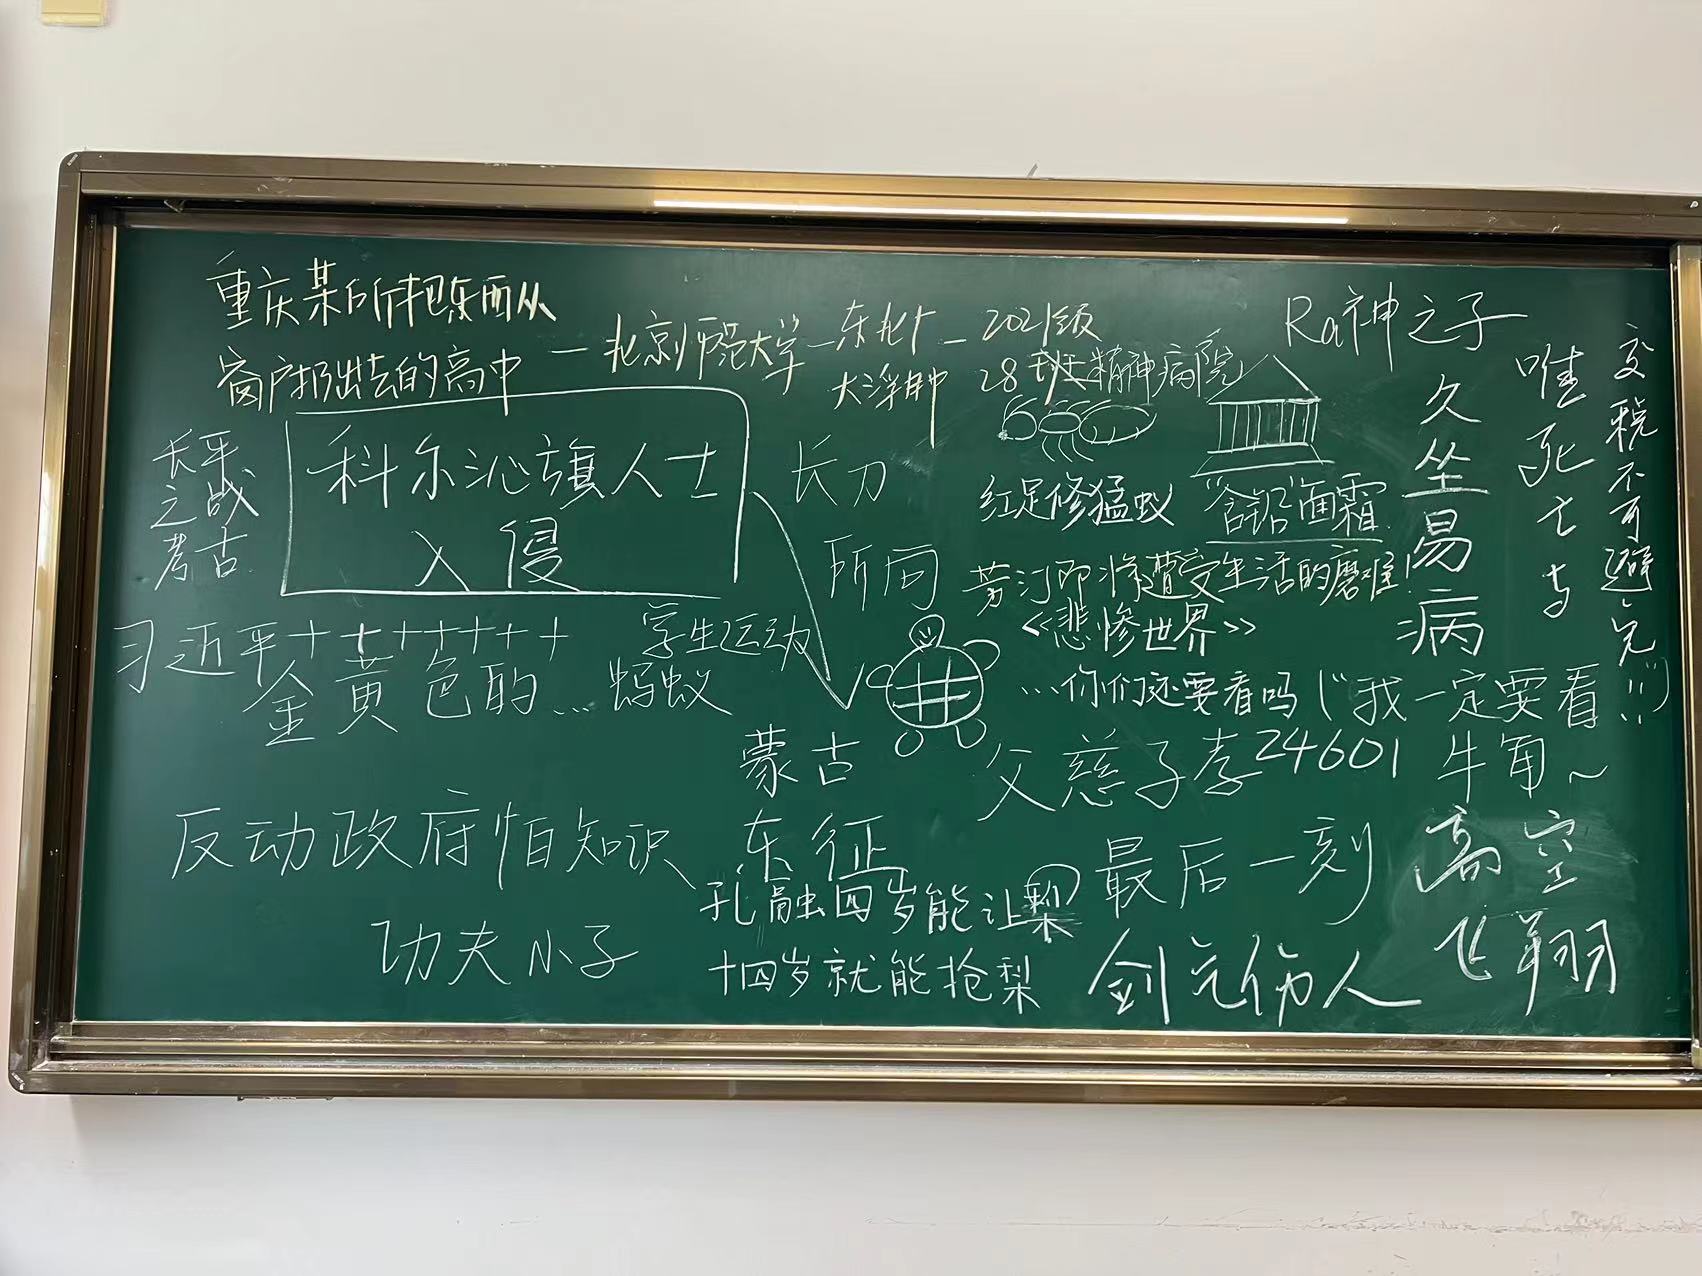 重庆某所把东西从
窗户扔出去的高中
北京师范大学
2021级
28班精神病院
Ra神之子
久坐易病
唯死亡与
交税不可避免!!!
长平
之战
考古
科尔沁旗人士
入侵
长刀
所向
红足修猛蚁
"含铅"面霜
芳汀即将遭受生活的磨难!
《悲惨世界》
...你们还要看吗("我一定要看
习近平++++++++
学生运动
金黄色的...蚂蚁
蒙古
东征
父慈子孝24601
反动政府怕知识
孔融四岁能让梨
十四岁就能抢梨
功夫小子
最后一刻
高空
飞翔